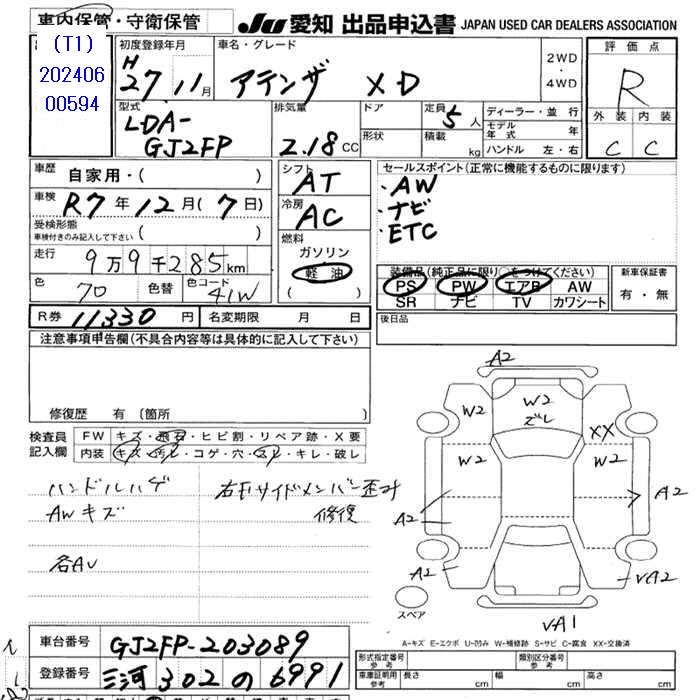 車内保管・守衛保管
Ju 愛知 出品申込書 JAPAN USED CAR DEALERS ASSOCIATION
(T1)
202406
00594
初度登録年月
H
27 . 11 月
車名・グレード
アテンザ XD
2WD
・
4WD
評価点
R
外装 内装
C C
型式
LDA-
GJ2FP
排気量
2.18 CC
ドア
形状
定員 5 人
積載 kg
ディーラー・並行
モデル年式 年
ハンドル 左・右
車歴 自家用・( )
車検 R7 年 12 月 ( 7 日)
受検形態
車検付きのみ記入して下さい ( )
走行 9万9千285km
色 70 色替 色コード 41W
シフト AT
冷房 AC
燃料
ガソリン
軽油
( )
セールスポイント(正常に機能するものに限ります)
・AW
・ナビ
・ETC
装備品(純正品に限り○をつけてください)
PS PW エアB AW
SR ナビ TV カワシート
新車保証書
有・無
R券 11,330 円 名変期限 月 日
後日品
注意事項申告欄(不具合内容等は具体的に記入して下さい)
修復歴 有 (箇所 )
検査員
記入欄
FW キズ・飛石・ヒビ割・リペア跡・X要
内装 キズ・汚レ・コゲ・穴・スレ・キレ・破レ
ハンドルハゲ
右Fサイドメンバー歪み
AWキズ
修復
各AU
A2
W2
W2
ズレ
XX
W2
W2
A2
A2
A2
VA2
スペア
VA1
A-キズ E-エクボ U-凹み W-補修跡 S-サビ C-腐食 XX-交換済
車台番号 GJ2FP-203089
登録番号 三河 302 の 6991
形式指定番号
参考
類別区分番号
参考
車庫証明用
参考
長さ cm 幅 cm 高さ cm